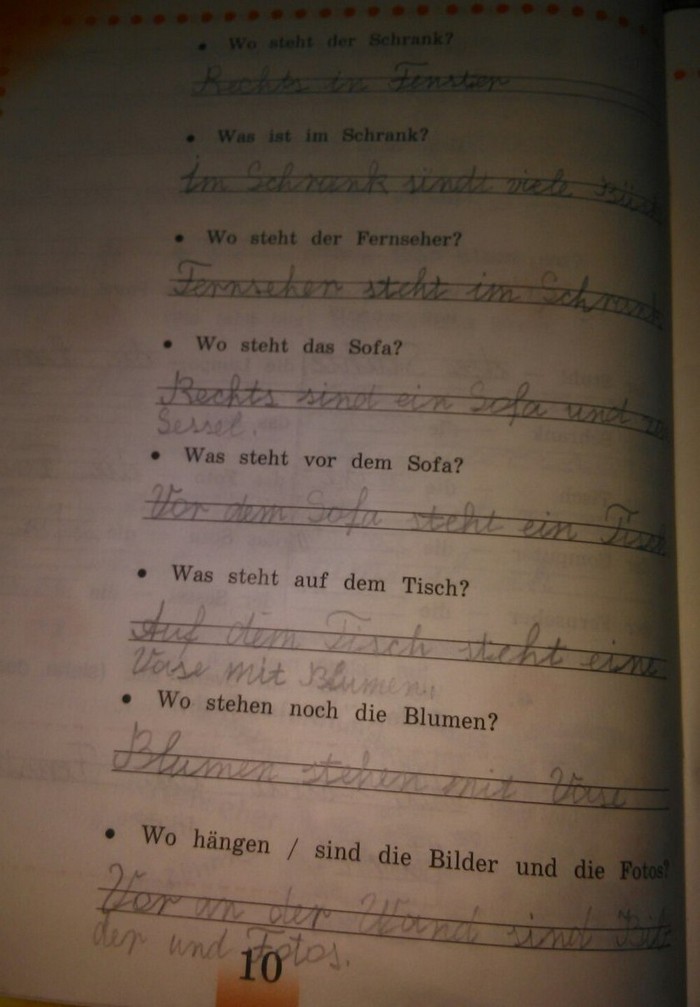 • Wo steht der Schrank?
Rechts in Fenster
• Was ist im Schrank?
Im Schrank sindt viele
• Wo steht der Fernseher?
Fernseher steht im Schrank
• Wo steht das Sofa?
Rechts sind ein Sofa und
Sessel.
• Was steht vor dem Sofa?
Vor dem Sofa steht ein Tisch
• Was steht auf dem Tisch?
Auf dem Tisch steht eine
Vase mit Blumen.
• Wo stehen noch die Blumen?
Blumen stehen mit Vase
• Wo hängen / sind die Bilder und die Fotos?
Vor an der Wand sind Bil
der und Fotos.
10